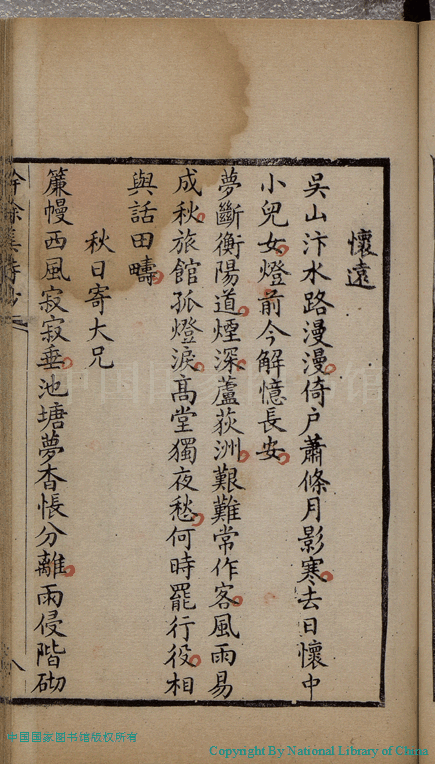 懷遠
吳山汴水路漫漫倚户蕭條月影寒去日懷中
小兒女燈前今解憶長安
夢斷衡陽道煙深蘆荻洲艱難常作客風雨易
成秋旅館孤燈淚髙堂獨夜愁何時罷行役相
與話田疇
秋日寄大兄
簾幔西風寂寂垂池塘夢杳悵分離雨侵階砌
八
中国国家图书馆
中国国家图书馆版权所有
Copyright By National Library of China